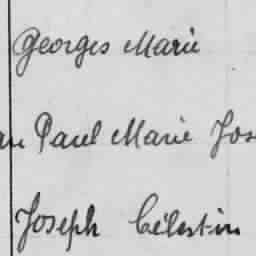 Georges Marie
Paul Marie
Joseph Célestin